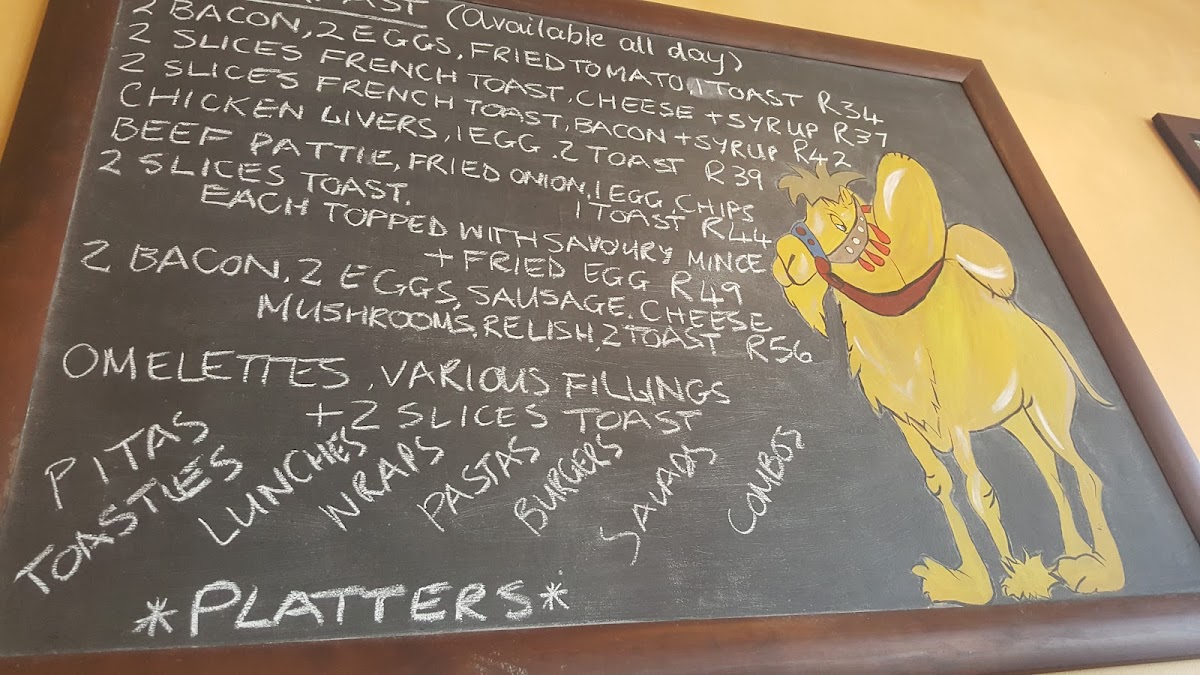 (available all day)
2 BACON, 2 EGGS, FRIED TOMATO, 1 TOAST R34
2 SLICES FRENCH TOAST, CHEESE + SYRUP R37
2 SLICES FRENCH TOAST, BACON + SYRUP R42
CHICKEN LIVERS, 1 EGG, 2 TOAST R39
BEEF PATTIE, FRIED ONION, 1 EGG, CHIPS
1 TOAST R44
2 SLICES TOAST.
EACH TOPPED WITH SAVOURY MINCE
+ FRIED EGG R49
2 BACON, 2 EGGS, SAUSAGE, CHEESE
MUSHROOMS, RELISH, 2 TOAST R56
OMELETTES, VARIOUS FILLINGS
+ 2 SLICES TOAST
PITAS
TOASTIES
LUNCHES
WRAPS
PASTAS
BURGERS
SALADS
COMBOS
*PLATTERS*